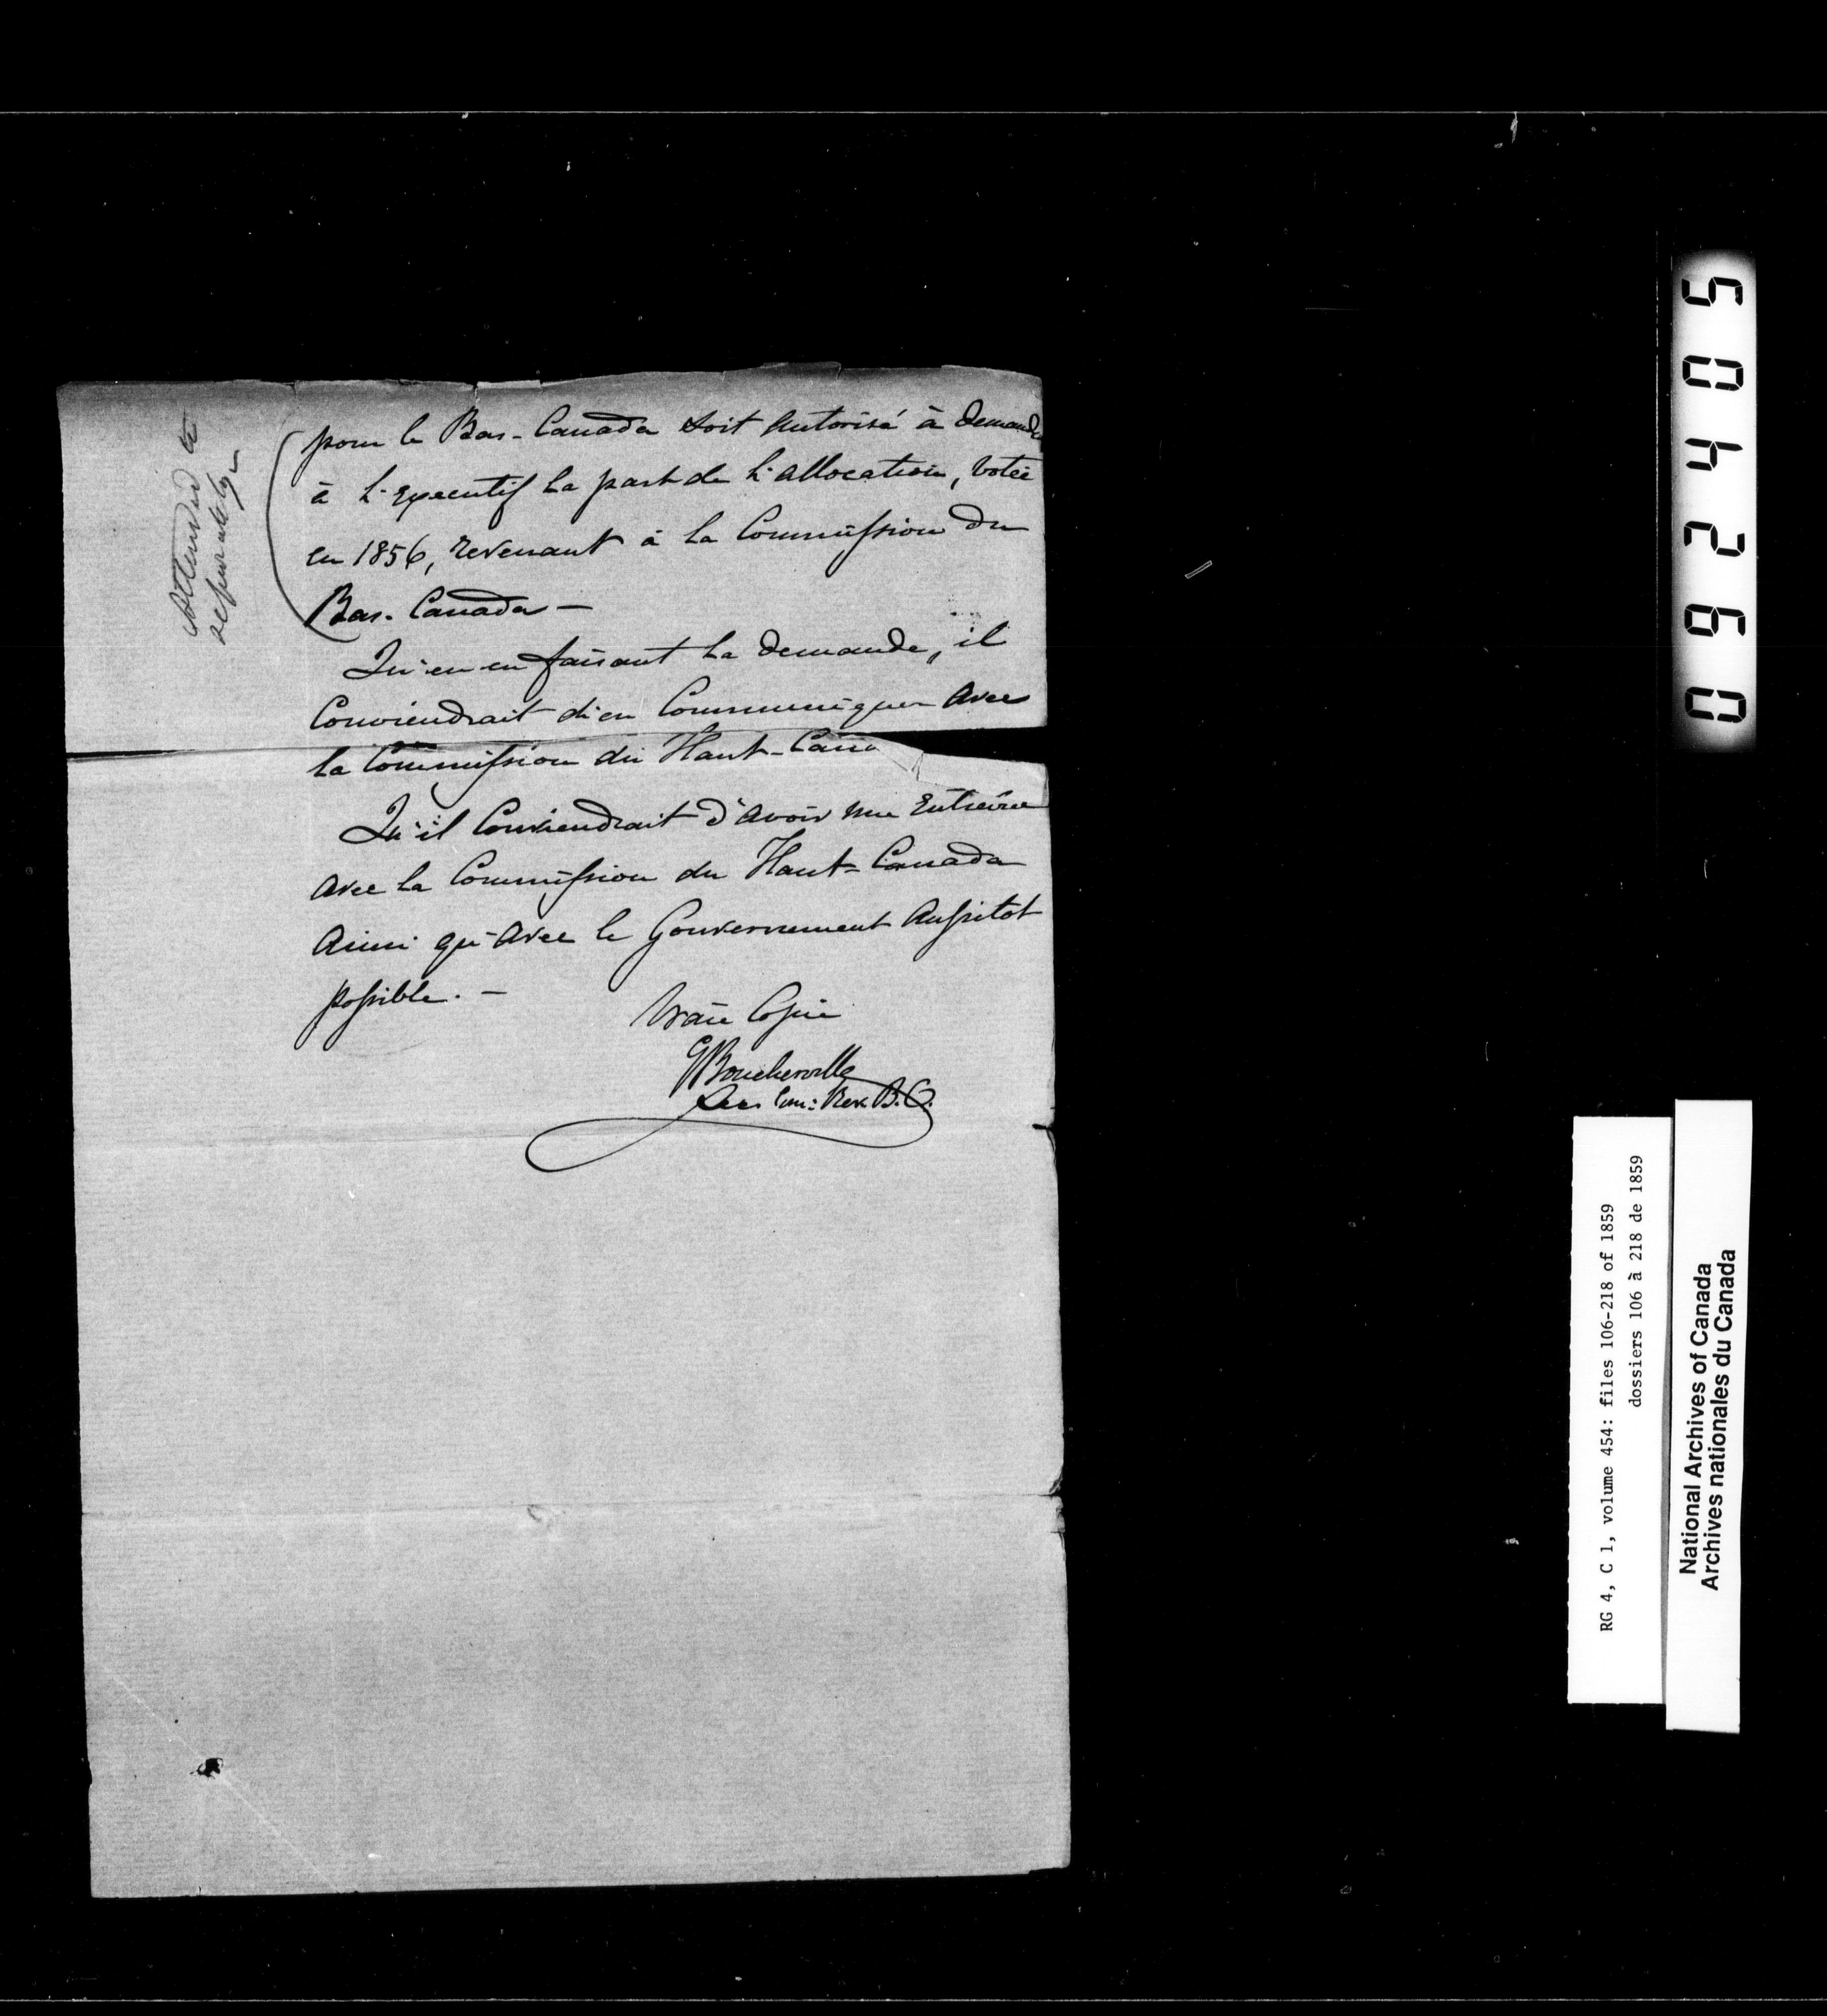 Attended to
separately
pour le Bas-Canada soit Autorisé à demande
à l'Executif la part de l'allocation, Votée
en 1856, revenant à la Commission du
Bas-Canada —
Qu'en en faisant la demande, il
Conviendrait d'en Communiquer Avec
la Commission du Haut-Cana
Qu'il Conviendrait d'avoir une Entrevue
Avec la Commission du Haut-Canada
Ainsi qu'Avec le Gouvernement Aussitot
possible. —
Vraie Copie
GBoucherville
Sec. Com: Rev. B.C.
092405
RG 4, C 1, volume 454: files 106-218 of 1859
dossiers 106 à 218 de 1859
National Archives of Canada
Archives nationales du Canada